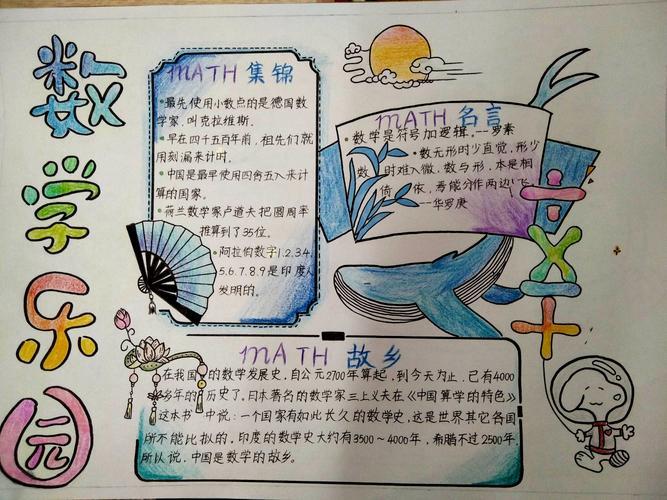 数学乐园
MATH 集锦
•最先使用小数点的是德国数
学家,叫克拉维斯.
•早在四千五百年前,祖先们就
用刻漏来计时.
•中国是最早使用四舍五入来计
算的国家.
•荷兰数学家卢道夫把圆周率
推算到了35位。
•阿拉伯数字1.2.3.4.
5.6.7.8.9是印度人
发明的。
MATH 名言
•数学是符号加逻辑。--罗素
•数无形时少直觉,形少
数时难入微,数与形,本是相
倚依,焉能分作两边飞。
--华罗庚
÷×+
MATH 故乡
在我国的数学发展史,自公元2700年算起,到今天为止,已有4000
多年的历史了,日本著名的数学家三上义夫在《中国算学的特色》
这本书中说:一个国家有如此长久的数学史,这是世界其它各国
所不能比拟的,印度的数学史大约有3500~4000年,希腊不过2500年,
所以说,中国是数学的故乡。